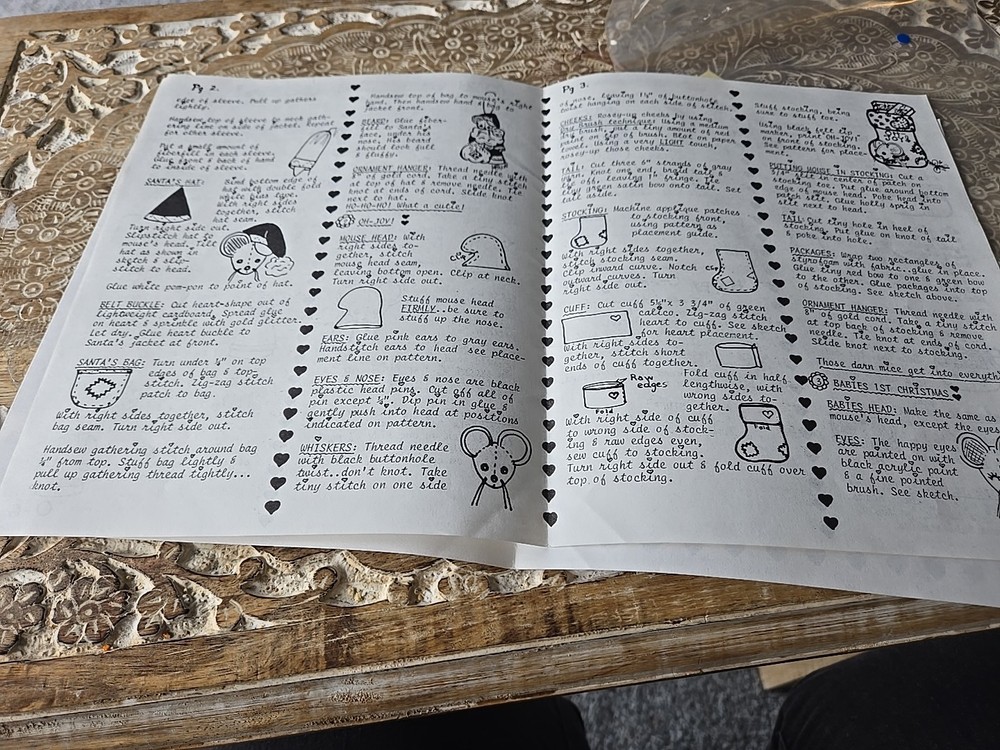 Pg 2.
edge of sleeve. Pull up gathers
tightly.
Handsew top of sleeve to neck gath-
ering line on side of jacket. Repeat
for 2nd sleeve.
Put a small amount of
inside of sleeve.
SANTA'S HAT:
with right sides
together, stitch
at seam.
Turn right side out.
mouse's head. Tilt
hat as shown in
stitch to head.
Glue white pom-pon to point of hat.
BELT BUCKLE: Cut heart-shape out of
lightweight cardboard. Spread glue
on heart & sprinkle with gold glitter.
Let dry. Glue heart buckle to
Santa's jacket at front.
SANTA'S BAG: Turn under ½" on top
edges of bag & top-
stitch. Zig-zag stitch
patch to bag.
With right sides together, stitch
bag seam. Turn right side out.
Handsew gathering stitch around bag
¼" from top. Stuff bag lightly &
pull up gathering thread tightly...
knot.
Handsew top of bag to right
hand. Then handsew hand & bag to
jacket front.
BEARD: Glue fiber-
fill to Santa's
face, under
nose. His beard
should look full
& fluffy.
ORNAMENT HANGER: Thread needle
Take a tiny stitch
at top of hat & remove needle. Tie
knot at ends of cord. Slide knot
next to hat.
HO-HO-HO! What a cutie!
OH-JOY!
MOUSE HEAD: With
right sides to-
gether, stitch
mouse head seam,
leaving bottom open.
Turn right side out.
Clip at neck.
Stuff mouse head
FIRMLY..be sure to
stuff up the nose.
EARS: Glue pink ears to gray ears.
Handstitch ears to head see place-
ment line on pattern.
EYES & NOSE: Eyes & nose are black
plastic head pins. Cut off all of
pin except ¼". Dip pin in glue &
gently push into head at positions
indicated on pattern.
WHISKERS: Thread needle
with black buttonhole
twist..don't knot. Take
tiny stitch on one side
Pg 3.
of nose, leaving 1½" of buttonhole
twist hanging on each side of stitch.
CHEEKS: Rosey-up cheeks by using
dry brush technique:
Using a very LIGHT touch,
rosey-up those cheeks.
TAIL: Cut three 6" strands of gray
floss. Knot one end, braid tail &
green satin bow onto tail. Set
tail aside.
STOCKING: Machine applique patches
to stocking front,
using pattern as
placement guide.
With right sides together,
stitch stocking seam.
Clip inward curve. Notch
outward curves. Turn
right side out.
CUFF: Cut cuff 5½"x 3 3/4" of green
calico. Zig-zag stitch
heart to cuff. See sketch
for heart placement.
With right sides to-
gether, stitch short
ends of cuff together.
Raw
edges
Fold
Fold cuff in half
lengthwise, with
wrong sides to-
gether.
With right side of cuff
to wrong side of stock-
ing & raw edges even,
sew cuff to stocking.
Turn right side out & fold cuff over
top of stocking.
Fold
Stuff stocking, being
sure to stuff toe.
Using black felt tip
marker, print OH-JOY!
See pattern for place-
ment.
PUTTING MOUSE IN STOCKING: Cut a
3/4" slit in center of patch on
stocking toe. Put glue around bottom
edge of mouse head. Poke head into
patch slit. Glue holly sprig in
next to head.
TAIL: Cut tiny hole in heel of
stocking. Put glue on knot of tail
& poke into hole.
PACKAGES: Wrap two rectangles of
styrofoam with fabric..glue in place.
Glue tiny red bow to one & green bow
to the other. Glue packages into top
of stocking. See sketch above.
ORNAMENT HANGER: Thread needle with
8" of gold cord. Take a tiny stitch
at top back of stocking & remove
needle. Tie knot at ends of cord.
Slide knot next to stocking.
Those darn mice get into everyth
BABIES 1ST CHRISTMAS
BABIES HEAD: Make the same as
mouse's head, except the eyes
EYES: The happy eyes
are painted on with
black acrylic paint
& a fine pointed
brush. See sketch.